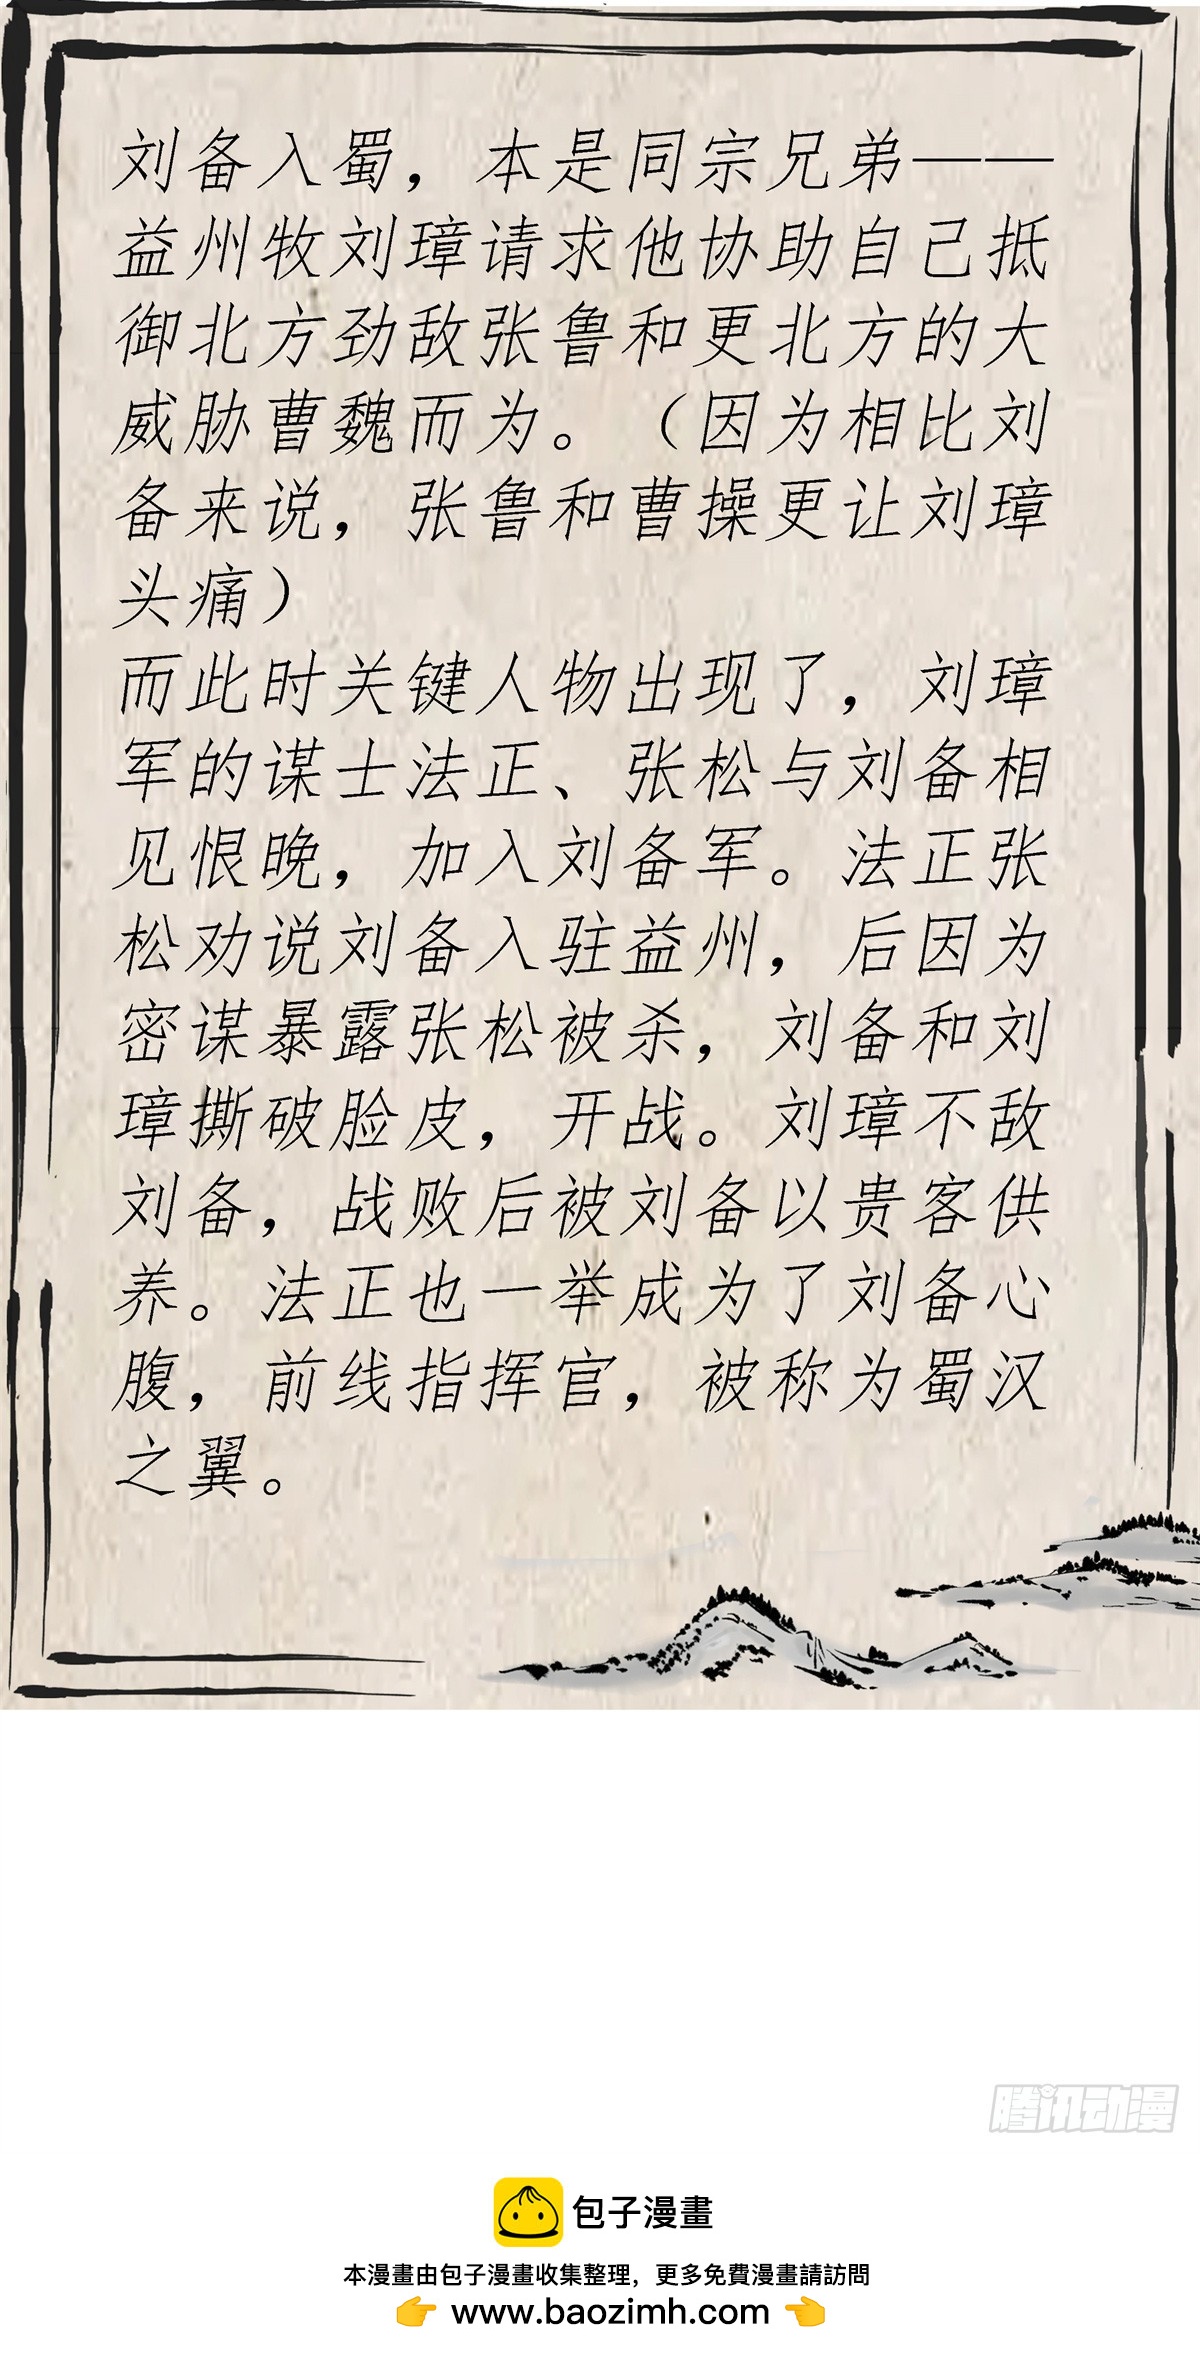 刘备入蜀，本是同宗兄弟——
益州牧刘璋请求他协助自己抵
御北方劲敌张鲁和更北方的大
威胁曹魏而为。（因为相比刘
备来说，张鲁和曹操更让刘璋
头痛）
而此时关键人物出现了，刘璋
军的谋士法正、张松与刘备相
见恨晚，加入刘备军。法正张
松劝说刘备入驻益州，后因为
密谋暴露张松被杀，刘备和刘
璋撕破脸皮，开战。刘璋不敌
刘备，战败后被刘备以贵客供
养。法正也一举成为了刘备心
腹，前线指挥官，被称为蜀汉
之翼。
腾讯动漫
包子漫畫
本漫畫由包子漫畫收集整理，更多免費漫畫請訪問
👉 www.baozimh.com 👈